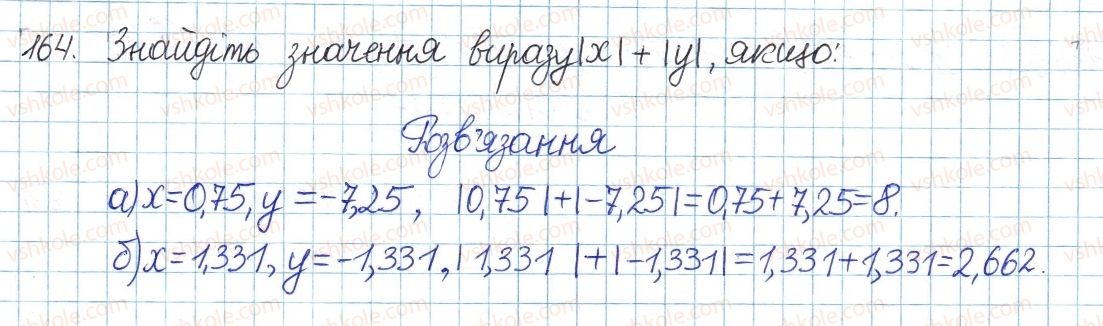 164. Знайдіть значення виразу |x| + |y|, якщо:
Розв'язання
а) x=0,75, y =-7,25, |0,75|+|-7,25|=0,75+7,25=8.
б) x=1,331, y=-1,331, | 1,331 |+|-1,331|=1,331+1,331=2,662.